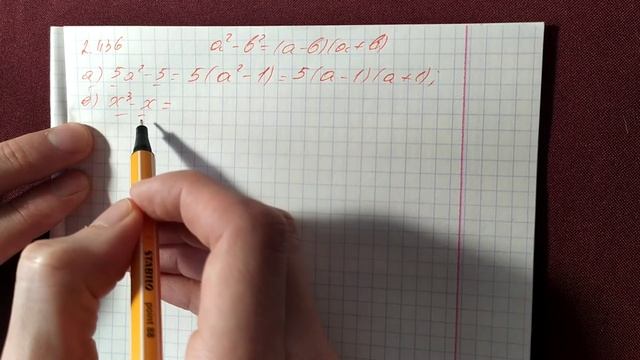 2.436 a² - b² = (a - b)(a + b)
а) 5a² - 5 = 5(a² - 1) = 5(a - 1)(a + 1);
б) x³ - x =
STABILO point 88